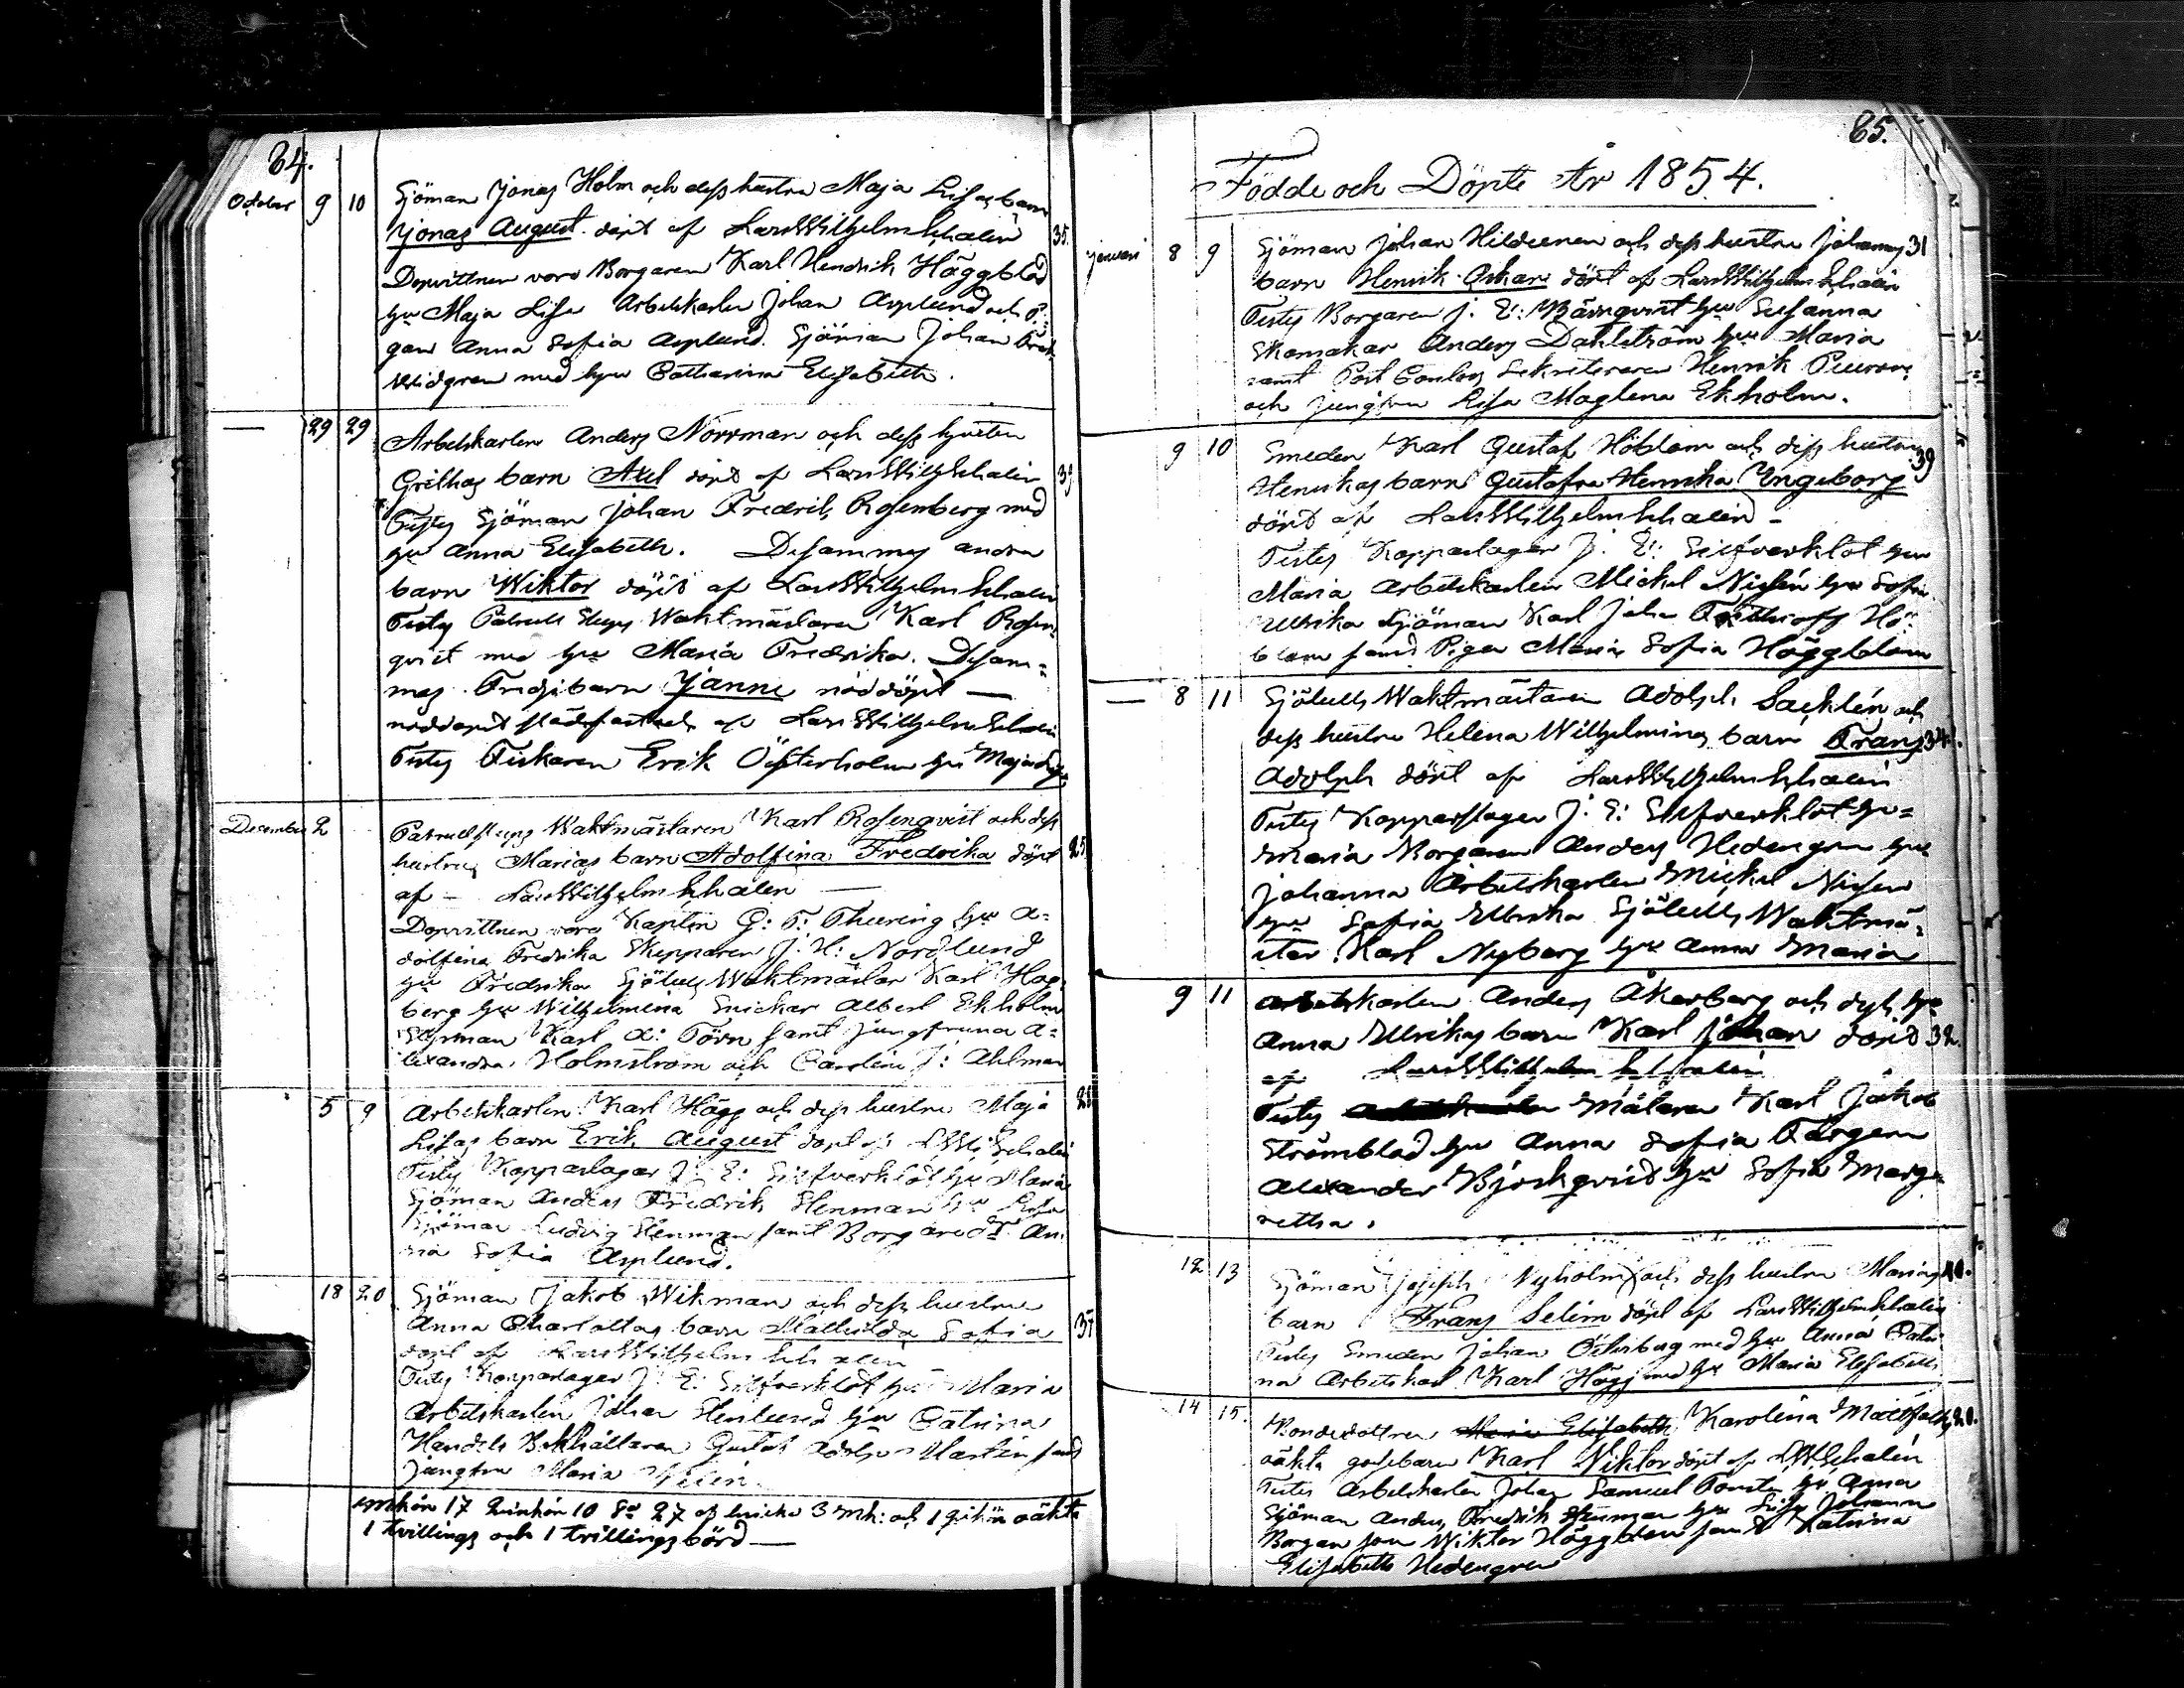 84.
October 9 10 Sjöman Jonas Holm och dess hustru Maja Lisas barn
Jonas August döpt af Lars Wilhelm Schalin 35.
Dopvittnen voro Borgaren Karl Hendrik Häggblad
hu Maja Lisa Arbetskarlen Johan Asplund och P:
gan Anna Sofia Asplund. Sjöman Johan
Widgren med hu Catharina Elisabeth.
— 29 29 Arbetskarlen Anders Norrman och dess hustru
Grethas barn Axel döpt af Lars Wilh Schalin
Testes Sjöman Johan Fredrik Rosenberg med
hu Anna Elisabeth. Desammas andra
barn Wiktor döpt af Lars Wilhelm Schalin
Testes Patrull Slups Waktmästaren Karl Rosen-
qvist med hu Maria Fredrika. Desam-
mas Tredje barn Janne nöddöpt —
nöddopet stadfästadt af Lars Wilhelm Schalin
Testes Fiskaren Erik Österholm hu Maja Lisa
December 2 Patrullslups Waktmästaren Karl Rosenqvist och dess
hustrus Marias barn Adolfina Fredrika döpt 25
af — Lars Wilhelm Schalin —
Dopvittnen voro Kaptén G: F: Thuring hu A-
dolfina Fredrika Skepparen J: H: Nordlund
hu Fredrika Sjötulls Waktmästar Karl Hag-
berg hu Wilhelmina Snickar Albert Ekholm
Styrman Karl A: Törn samt jungfruna A-
lexandra Holmström och Carolin J: Ahlman
5 9 Arbetskarlen Karl Hägg och dess hustru Maja 28
Lisas barn Erik August döpt af LW Schalin
Testes Kopparslagar J: E: Silfverklot hu Maria
Sjöman Anders Fredrik Stenman hu Lisa
Sjöman Ludvig Stenman samt Borgaredr An-
na Sofia Asplund.
18 20 Sjöman Jakob Wikman och dess hustru
Anna Charlottas barn Mathilda Sofia 37
döpt af Lars Wilhelm Schalin
Testes Kopparslagar J: E: Silfverklot hu Maria
Arbetskarlen Johan Stenlund hu Catrina
Handels Bokhållaren Gustaf Adolf Martin samt
jungfru Maria
Mankön 17 Qvinkön 10 Sa 27 af hvilka 3 mk: och 1 qvkön oäkta
1 tvillings och 1 trillingsbörd —
85.
Födde och Döpte År 1854.
januari 8 9 Sjöman Johan Hildeenen och dess hustru Johannas 31
barn Henrik Oskar döpt af Lars Wilhelm Schalin
Testes Borgaren J. E: Wärnqvist hu Susanna
Skomakar Anders Dahlström hu Maria
samt Post Contors Sekreteraren Henrik
och jungfru Lisa Maglena Ekholm.
9 10 Smeden Karl Gustaf Höblom och dess hustru
Henrikas barn Gustafva Henrika Yngeborg 39
döpt af Lars Wilhelm Schalin —
Testes Kopparslagar J. E: Silfverklot hu
Maria Arbetskarlen Mickel Nislin hu Sofia
Ullrika Sjöman Karl Johan Hö-
blom samt Pigan Maria Sofia Häggblom
— 8 11 Sjötulls Waktmästaren Adolph Sacklén och
dess hustru Helena Wilhelminas barn Frans 34.
Adolph döpt af Lars Wilhelm Schalin
Testes Kopparslagar J. E: Silfverklot hu-
Maria Borgaren Anders Hedengren hu
Johanna Arbetskarlen Mickel Nislin
hu Sofia Ullrika Sjötulls Waktmä-
star Karl Nyberg hu Anna Maria
9 11 Arbetskarlen Anders Åkerberg och dess hu
Anna Ullrikas barn Karl Johan döpt 32.
af Lars Wilhelm Schalin
Testes Målaren Karl Jakob
Strömblad hu Anna Sofia Färgern
Alexander Björkqvist hu Sofia Marga-
retha.
12 13 Sjöman Joseph Nyholm och dess hustru Marias
barn Frans Selim döpt af Lars Wilhelm Schalin
Testes Smeden Johan Österberg med hu Anna Catri-
na Arbetskarl Karl Hägg med hu Maria Elisabeth
14 15. Bondedottren Maria Elisabeth Karolina Mattsdotters 20.
oäkta gossebarn Karl Wiktor döpt af LW Schalin
Testes Arbetskarlen Johan Samuel Forstén hu Anna
Sjöman Anders Fredrik Stenman hu Lisa Johanna
Borgar son Wiktor Häggblom samt Katrina
Elisabeth Hedengren